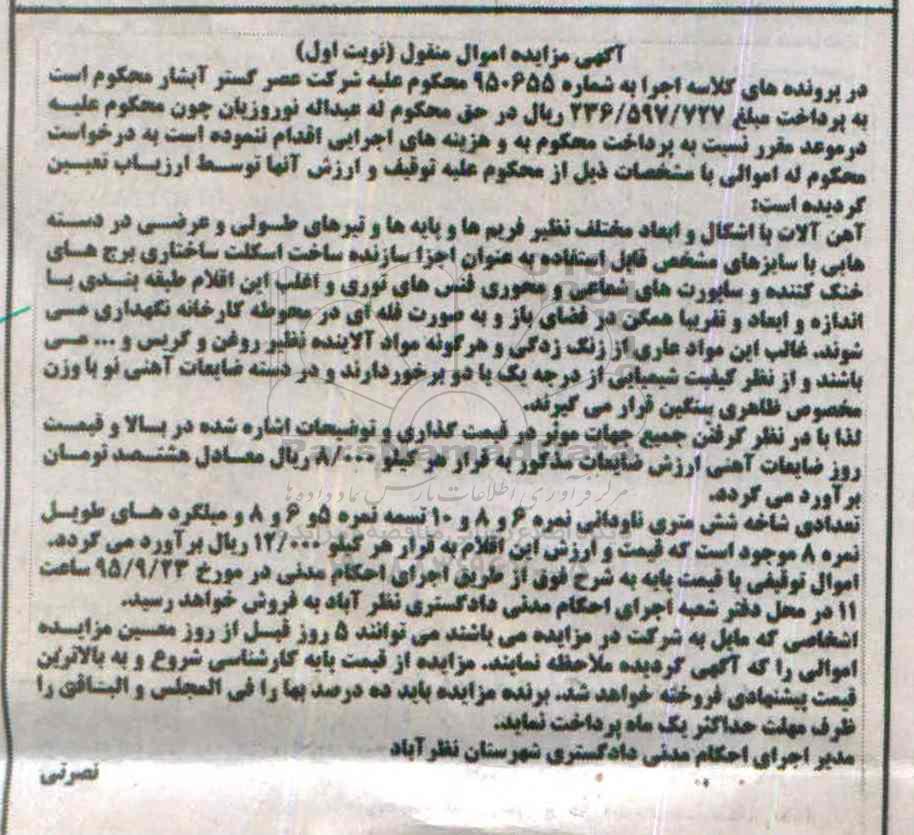 آگهی مزایده اموال منقول (نوبت اول)
در پرونده های کلاسه اجرا به شماره ۹۵۰۶۵۵ محکوم علیه شرکت عصر گستر آبشار محکوم است
به پرداخت مبلغ ۲۳۶/۵۹۷/۷۲۷ ریال در حق محکوم له عبداله نوروزیان چون محکوم علیه
درموعد مقرر نسبت به پرداخت محکوم به و هزینه های اجرایی اقدام ننموده است به درخواست
محکوم له اموالی با مشخصات ذیل از محکوم علیه توقیف و ارزش آنها توسط ارزیاب تعیین
گردیده است:
آهن آلات با اشکال و ابعاد مختلف نظیر فریم ها و پایه ها و تیرهای طولی و عرضی در دسته
هایی با سایزهای مشخص قابل استفاده به عنوان اجزا سازنده ساخت اسکلت ساختاری برج های
خنک کننده و ساپورت های شعاعی و محوری فنس های توری و اغلب این اقلام طبقه بندی با
اندازه و ابعاد و تقریبا همگن در فضای باز و به صورت فله ای در محوطه کارخانه نگهداری می
شوند. غالب این مواد عاری از زنگ زدگی و هرگونه مواد آلاینده نظیر روغن و گریس و ... می
باشند و از نظر کیفیت شیمیایی از درجه یک یا دو برخوردارند و در دسته ضایعات آهنی نو با وزن
مخصوص ظاهری سنگین قرار می گیرند.
لذا با در نظر گرفتن جمیع جهات موثر در قیمت گذاری و توضیحات اشاره شده در بالا و قیمت
روز ضایعات آهنی ارزش ضایعات مذکور به قرار هر کیلو ۸/۰۰۰ ریال معادل هشتصد تومان
برآورد می گردد.
تعدادی شاخه شش متری ناودانی نمره ۶ و ۸ و ۱۰ تسمه نمره ۵و ۶ و ۸ و میلگرد های طویل
نمره ۸ موجود است که قیمت و ارزش این اقلام به قرار هر کیلو ۱۲/۰۰۰ ریال برآورد می گردد.
اموال توقیفی با قیمت پایه به شرح فوق از طریق اجرای احکام مدنی در مورخ ۹۵/۹/۲۳ ساعت
۱۱ در محل دفتر شعبه اجرای احکام مدنی دادگستری نظر آباد به فروش خواهد رسید.
اشخاصی که مایل به شرکت در مزایده می باشند می توانند ۵ روز قبل از روز معین مزایده
اموالی را که آگهی گردیده ملاحظه نمایند. مزایده از قیمت پایه کارشناسی شروع و به بالاترین
قیمت پیشنهادی فروخته خواهد شد. برنده مزایده باید ده درصد بها را فی المجلس و الباقی را
ظرف مهلت حداکثر یک ماه پرداخت نماید.
مدیر اجرای احکام مدنی دادگستری شهرستان نظرآباد
نصرتی